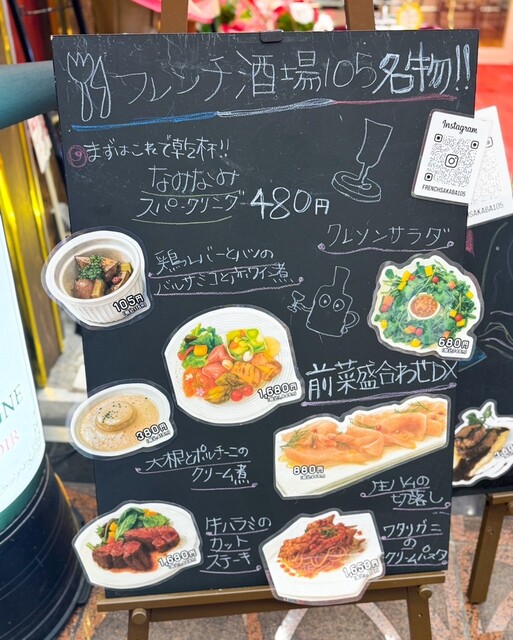 フレンチ酒場105名物!!
まずはこれで乾杯!!
なみなみ
スパークリング 480円
Instagram
FRENCHSAKABA105
FRENCHSAKABA105
クレソンサラダ
680円
鶏レバーとハツの
バルサミコと赤ワイン煮
105円
1,680円
前菜盛合わせDX
380円
大根とポルチーニの
クリーム煮
880円
生ハムの
切落し
牛ハラミの
カット
ステーキ
1,680円
ワタリガニ
の
クリームパスタ
1,650円